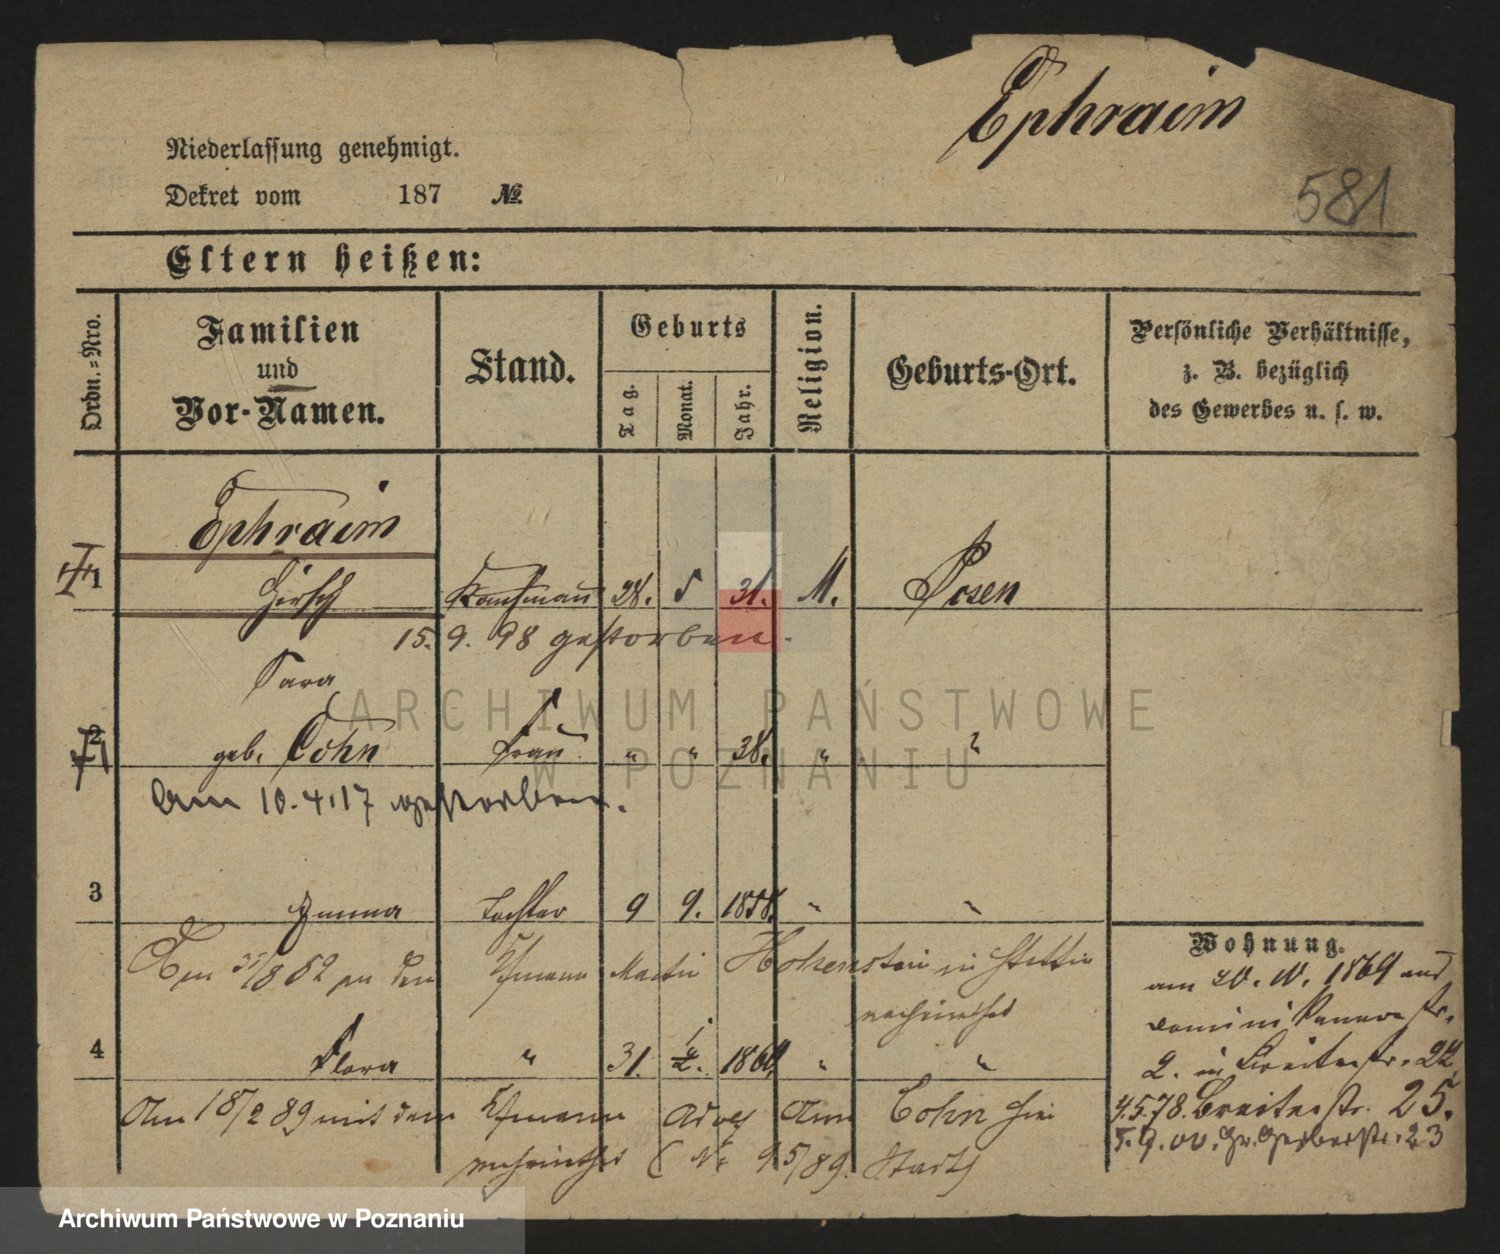 Ephraim
581
Niederlassung genehmigt.
Dekret vom 187 №
Eltern heißen:
Ordn.=Nro.
Familien und Vor-Namen.
Stand.
Geburts
Tag.
Monat.
Jahr.
Religion.
Geburts-Ort.
Persönliche Verhältnisse,
z. B. bezüglich
des Gewerbes u. s. w.
Ephraim
1 Hirsch Kaufmann 28. 5 31. M. Posen
15. 9. 98 gestorben.
Sara
2 geb. Cohn Frau " " 38. " "
Am 10.4.17 gestorben.
3 Emma Tochter 9 9. 1858. " "
Am /8 82 an den Kfmann Martin Hohenstein in Stettin
verheirathet
4 Flora " 31. 1869 " "
Am 18/2 89 mit dem Kfmann Adolf Cohn hier
verheirathet (N. 95/89. Stadt)
Wohnung.
am 20. 1869 aus
Dominikanerstr.
2. in Breitestr. 22
4.5.78. Breitestr. 25.
5.9.00. Gr. Gerberstr. 23
ARCHIWUM PAŃSTWOWE
W POZNANIU
Archiwum Państwowe w Poznaniu